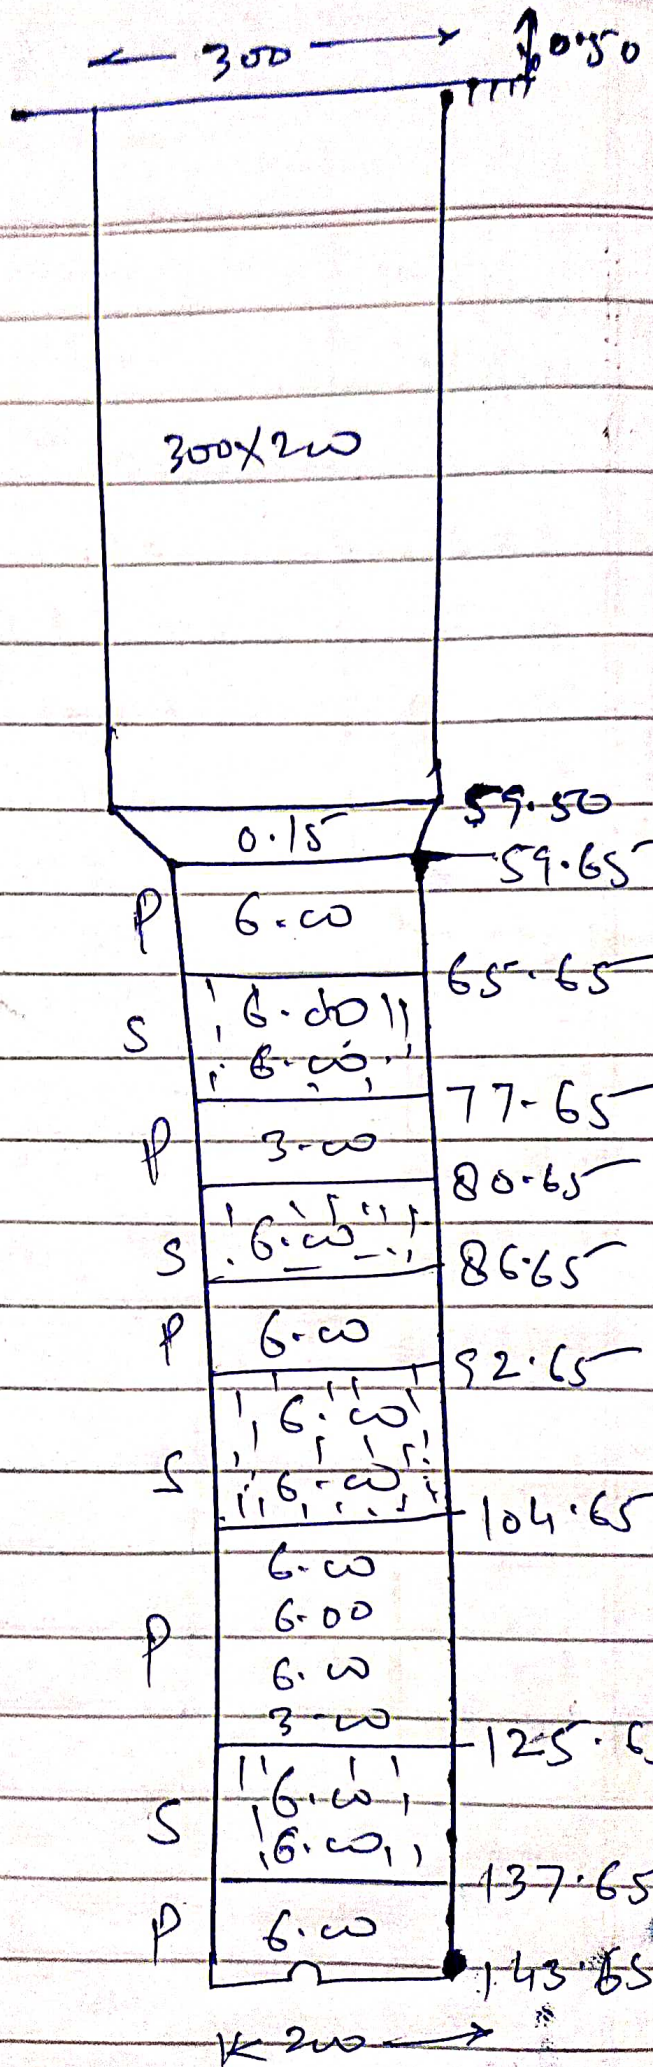 300 0.50
300X200
59.50
0.15
59.65
P 6.00
65.65
6.00
S
6.00
77.65
P 3.00
80.65
S 6.00
86.65
P 6.00
92.65
6.00
S 6.00
104.65
6.00
6.00
P
6.00
3.00
125.6
6.00
S
6.00
137.65
P 6.00
143.65
200